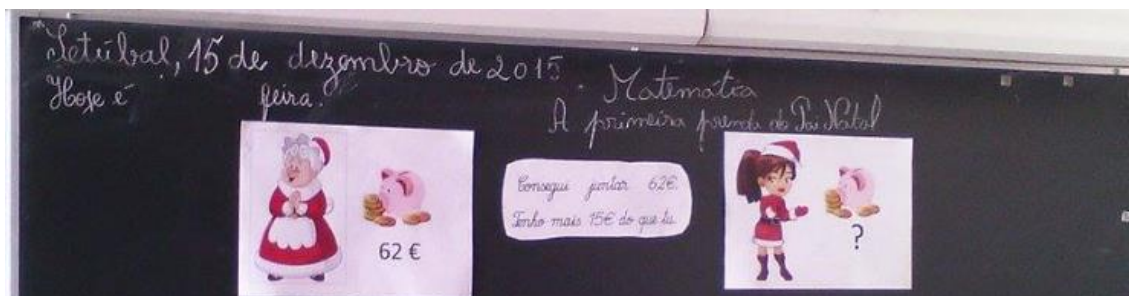 Setúbal, 15 de dezembro de 2015
Hoje é feira.
Matemática
A primeira prenda do Pai Natal
62 €
Consegui juntar 62€.
Tenho mais 15€ do que tu.
?